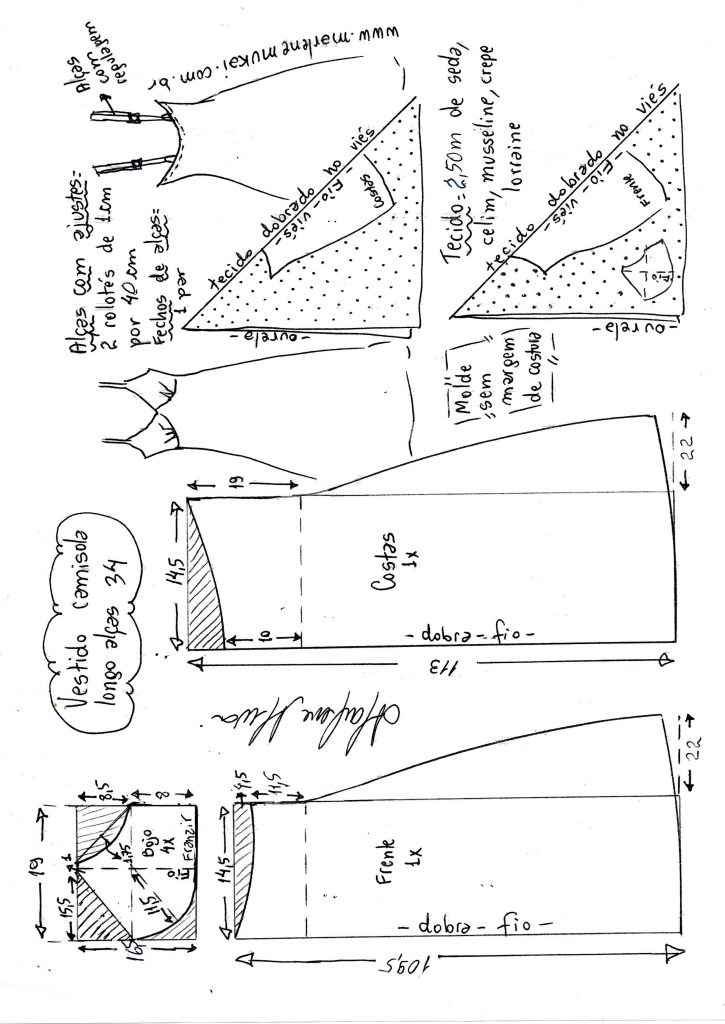 Vestido camisola
longo alças 34
Alças com ajustes=
2 rolotés de 1cm
por 40 cm
Fechos de alças=
1 par
Alças
com
regulagem
www.marlenemukai.com.br
tecido dobrado no viés
- Fio - viés -
Costas
- ourela -
Tecido = 2,50m de seda,
cetim, musseline, crepe
lorraine
tecido dobrado no viés
- Fio - viés -
Frente
Fio
- ourela -
Molde
sem
margem
de costura
19
15,5
1
8,5
8
16,5
11,5
1,75
Bojo
4x
Fio
Franzir
14,5
4,5
11,5
Frente
1x
- dobra - fio -
109,5
22
14,5
19
10
Costas
1x
- dobra - fio -
113
22